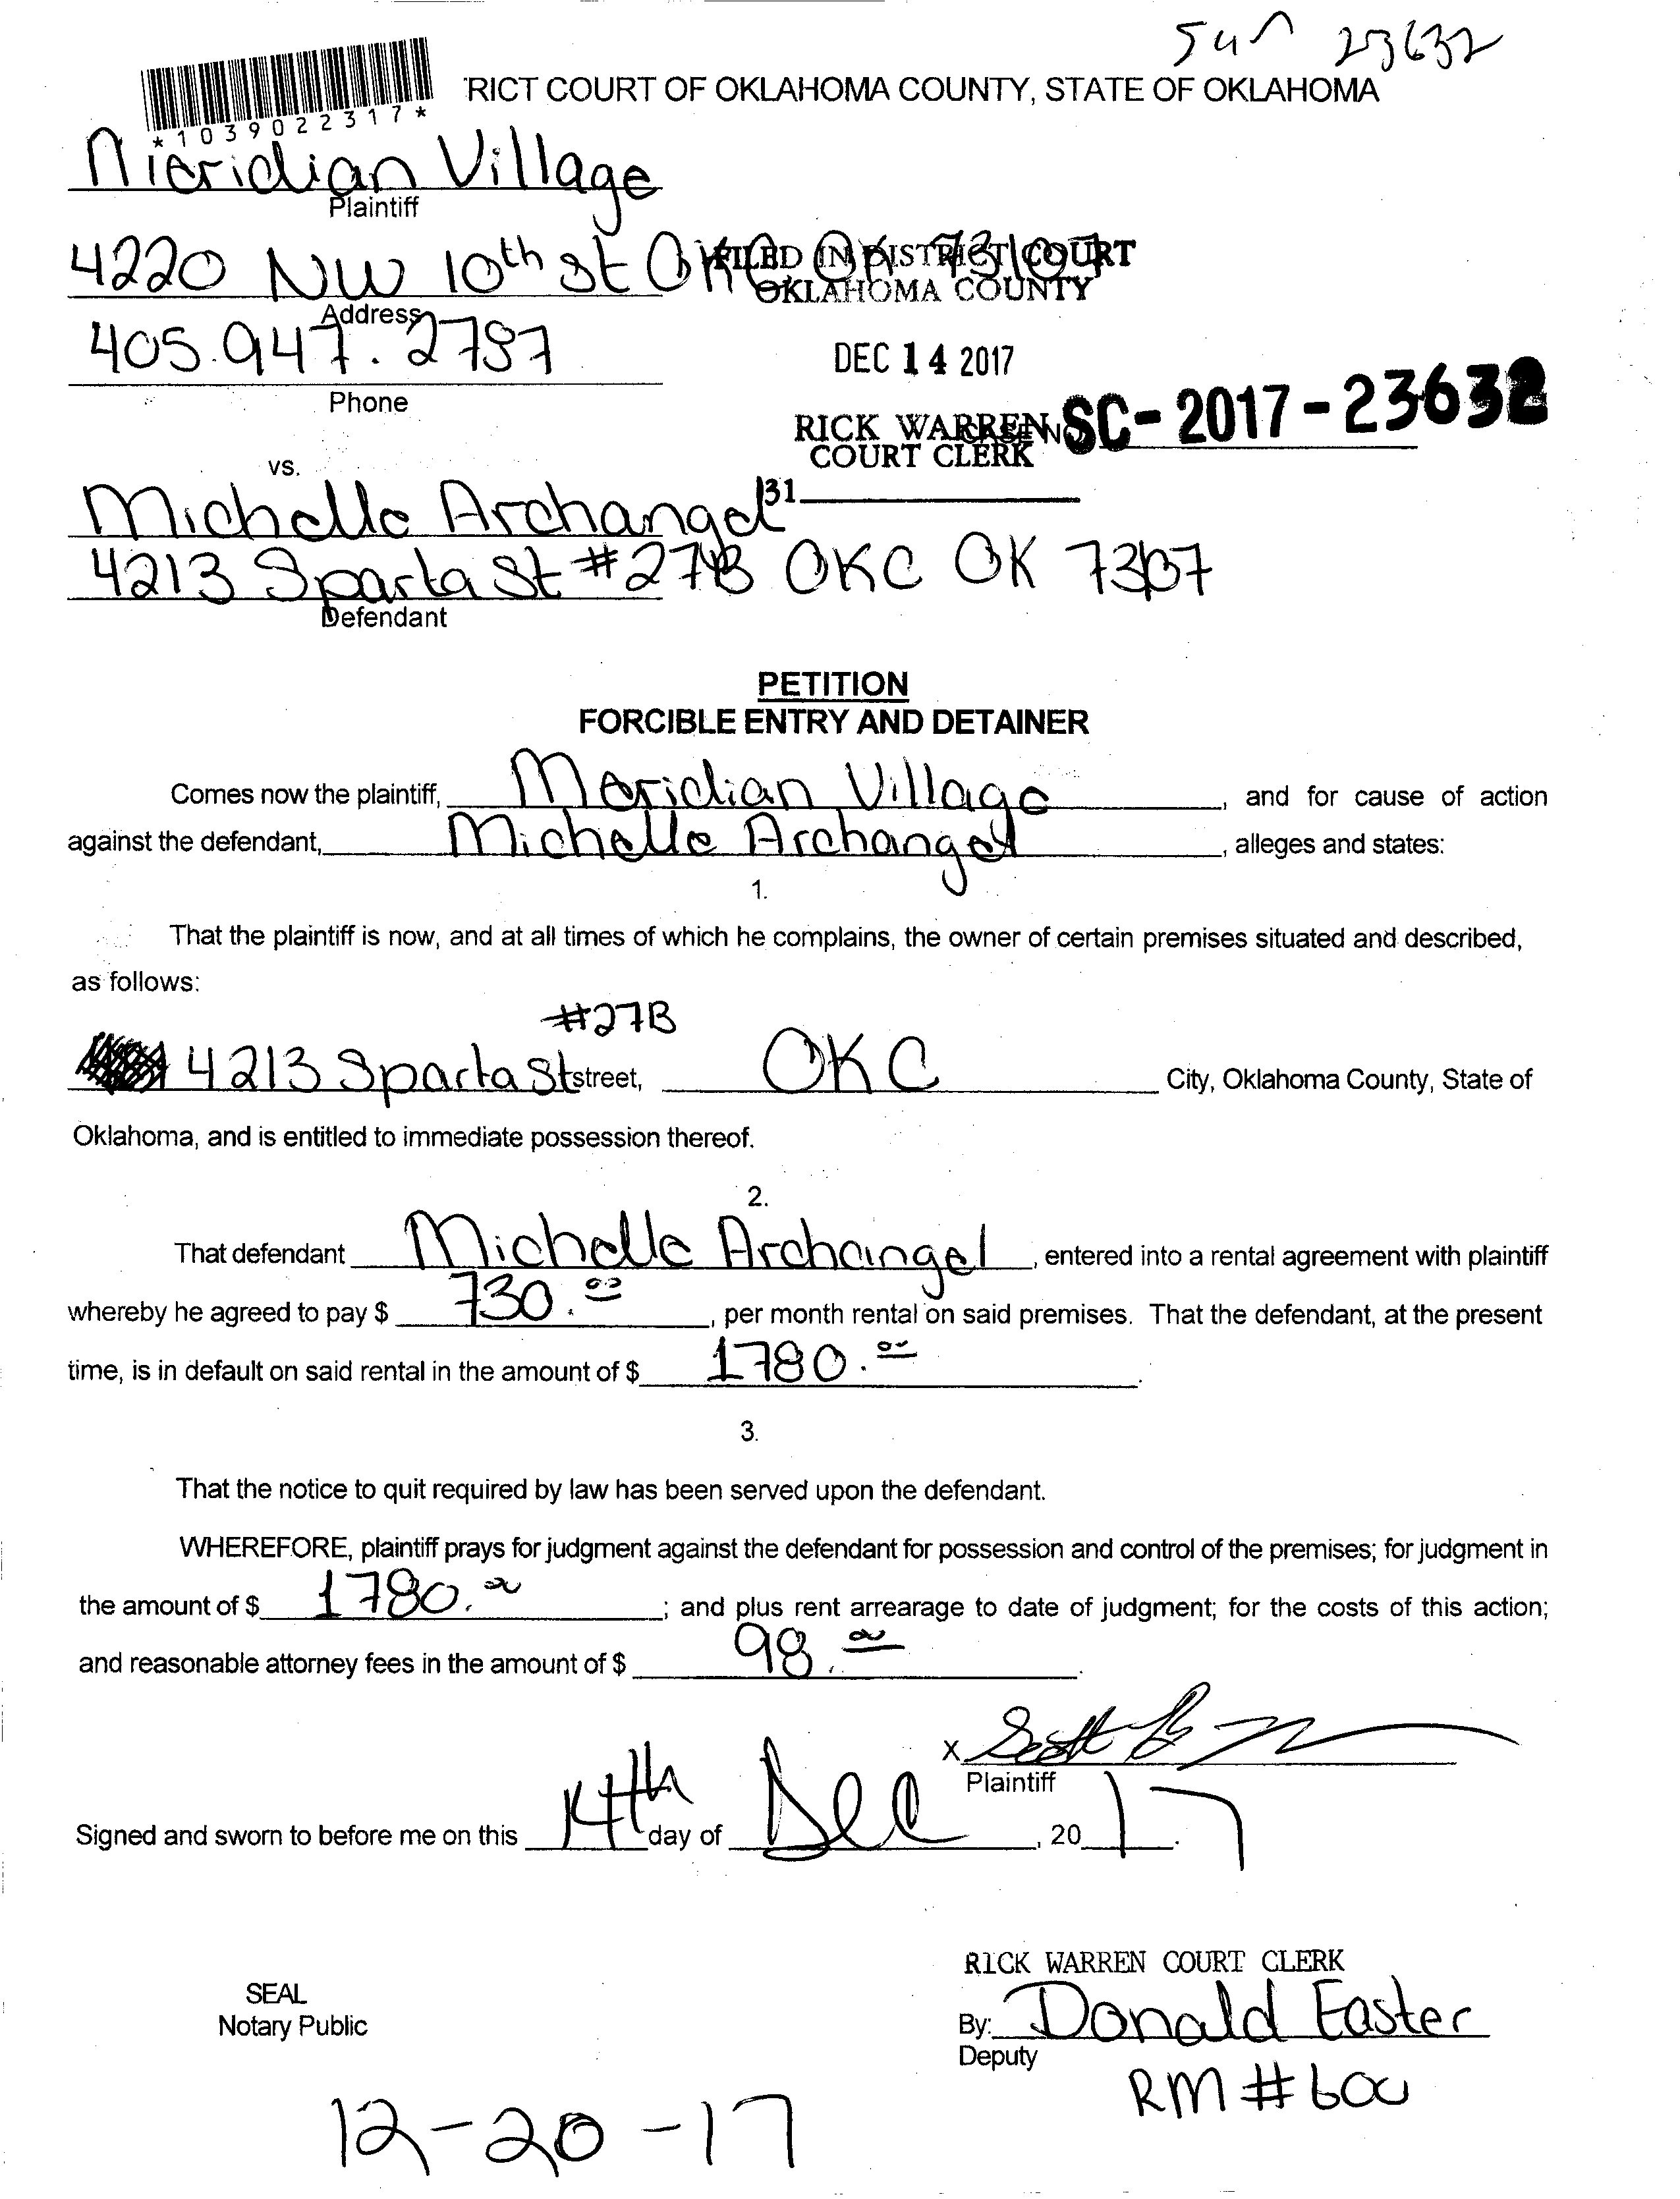 23632
'RICT COURT OF OKLAHOMA COUNTY, STATE OF OKLAHOMA
*1039022317*
Meridian Village
Plaintiff
4220 NW 10th st OKC OK 73107
FILED IN DISTRICT COURT
OKLAHOMA COUNTY
Address
405.947.2787
DEC 14 2017
Phone
RICK WARREN
COURT CLERK
CASE NO. SC-2017-23632
vs.
31.
Michelle Archangel
4213 Sparta St #27B OKC OK 73107
Defendant
PETITION
FORCIBLE ENTRY AND DETAINER
Comes now the plaintiff, Meridian Village, and for cause of action
against the defendant, Michelle Archangel, alleges and states:
1.
That the plaintiff is now, and at all times of which he complains, the owner of certain premises situated and described,
as follows:
#27B
4213 Sparta St street, OKC City, Oklahoma County, State of
Oklahoma, and is entitled to immediate possession thereof.
2.
That defendant Michelle Archangel, entered into a rental agreement with plaintiff
whereby he agreed to pay $ 730.00, per month rental on said premises. That the defendant, at the present
time, is in default on said rental in the amount of $ 1780.00.
3.
That the notice to quit required by law has been served upon the defendant.
WHEREFORE, plaintiff prays for judgment against the defendant for possession and control of the premises; for judgment in
the amount of $ 1780.00; and plus rent arrearage to date of judgment; for the costs of this action;
and reasonable attorney fees in the amount of $ 98.00.
X Scott
Plaintiff
Signed and sworn to before me on this 14th day of Dec, 2017.
RICK WARREN COURT CLERK
SEAL
Notary Public
By: Donald Easter
Deputy
RM #600
12-20-17